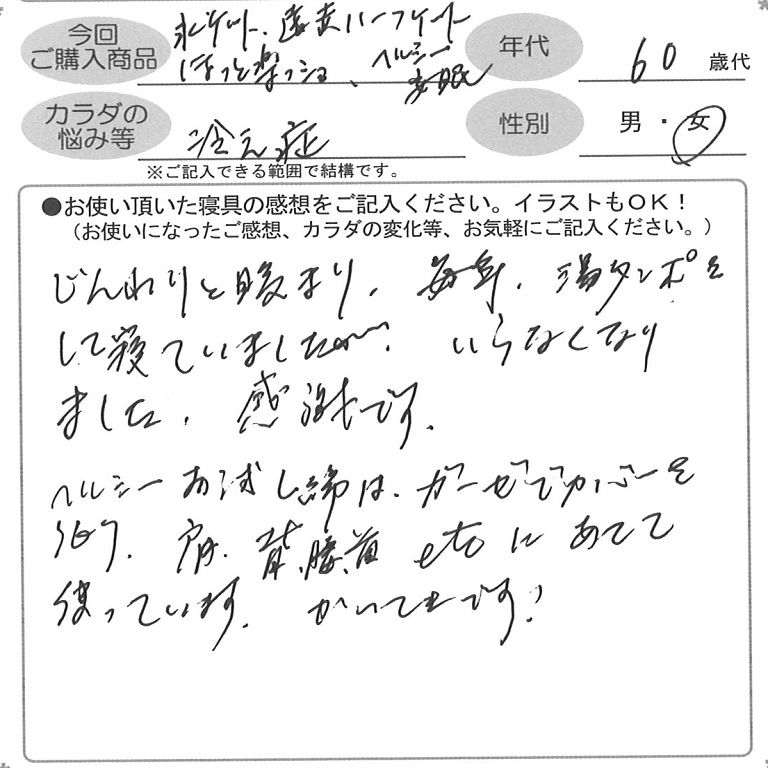 今回
ご購入商品
ケット、遠赤ハーフケット
ほっと楽っショ、ヘルシー
安眠
年代
60 歳代
カラダの
悩み等
冷え症
性別
男・女
※ご記入できる範囲で結構です。
●お使い頂いた寝具の感想をご記入ください。イラストもOK！
（お使いになったご感想、カラダの変化等、お気軽にご記入ください。）
じんわりと暖まり、毎年、湯タンポを
して寝ていましたが、いらなくなり
ました。感謝です。
ヘルシーお試し綿は、ガーゼでカバーを
作り、肩、背、腰、首 etcにあてて
使っています。かいてきです！